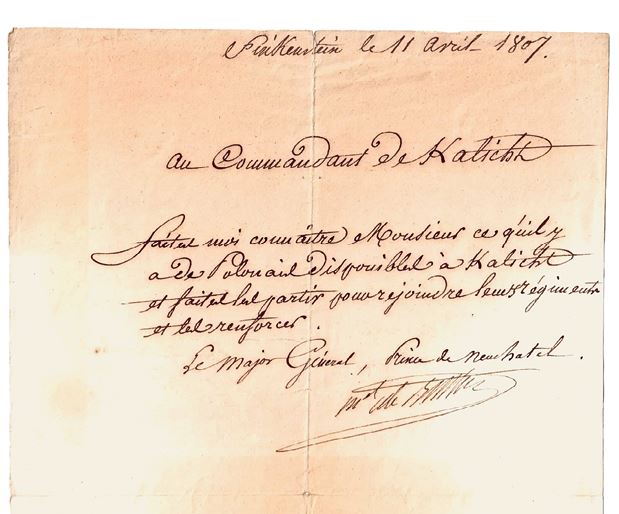 Finkenstein le 11 avril 1807.
au Commandant de Kalisch
faites moi connaitre Monsieur ce qu'il y
a de Polonais disponibles à Kalisch
et faites les partir pour rejoindre leurs régiments
et les renforcer.
Le Major Général, Prince de Neuchatel.